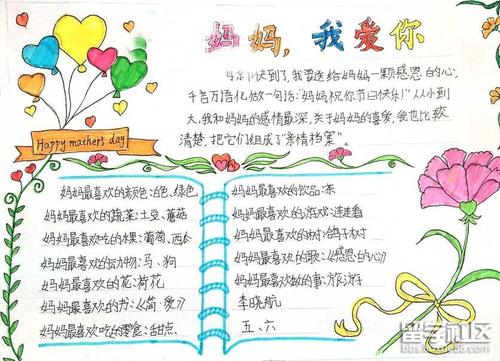 妈妈，我爱你
快到了,我要送给妈妈一颗感恩的心,
千言万语化做一句话:"妈妈祝你节日快乐!"从小到
大,我和妈妈的感情最深,关于妈妈的喜爱,我也比较
清楚,把它们组成了"亲情档案"。
Happy mathers day
妈妈最喜欢的颜色:白色、绿色
妈妈最喜欢的蔬菜:土豆、蘑菇
妈妈最喜欢吃的水果:葡萄、西
妈妈最喜欢的动物:马、狗
妈妈最喜欢的花:荷花
妈妈最喜欢的书:《简·爱》
妈妈最喜欢吃的零食:甜点
妈妈最喜欢的饮品:茶
妈妈最喜欢的游戏:连连看
妈妈最喜欢的树:鸽子树
妈妈最喜欢的歌:《感恩的心》
妈妈最喜欢做的事:旅游
李晓航
五、六
留学社区